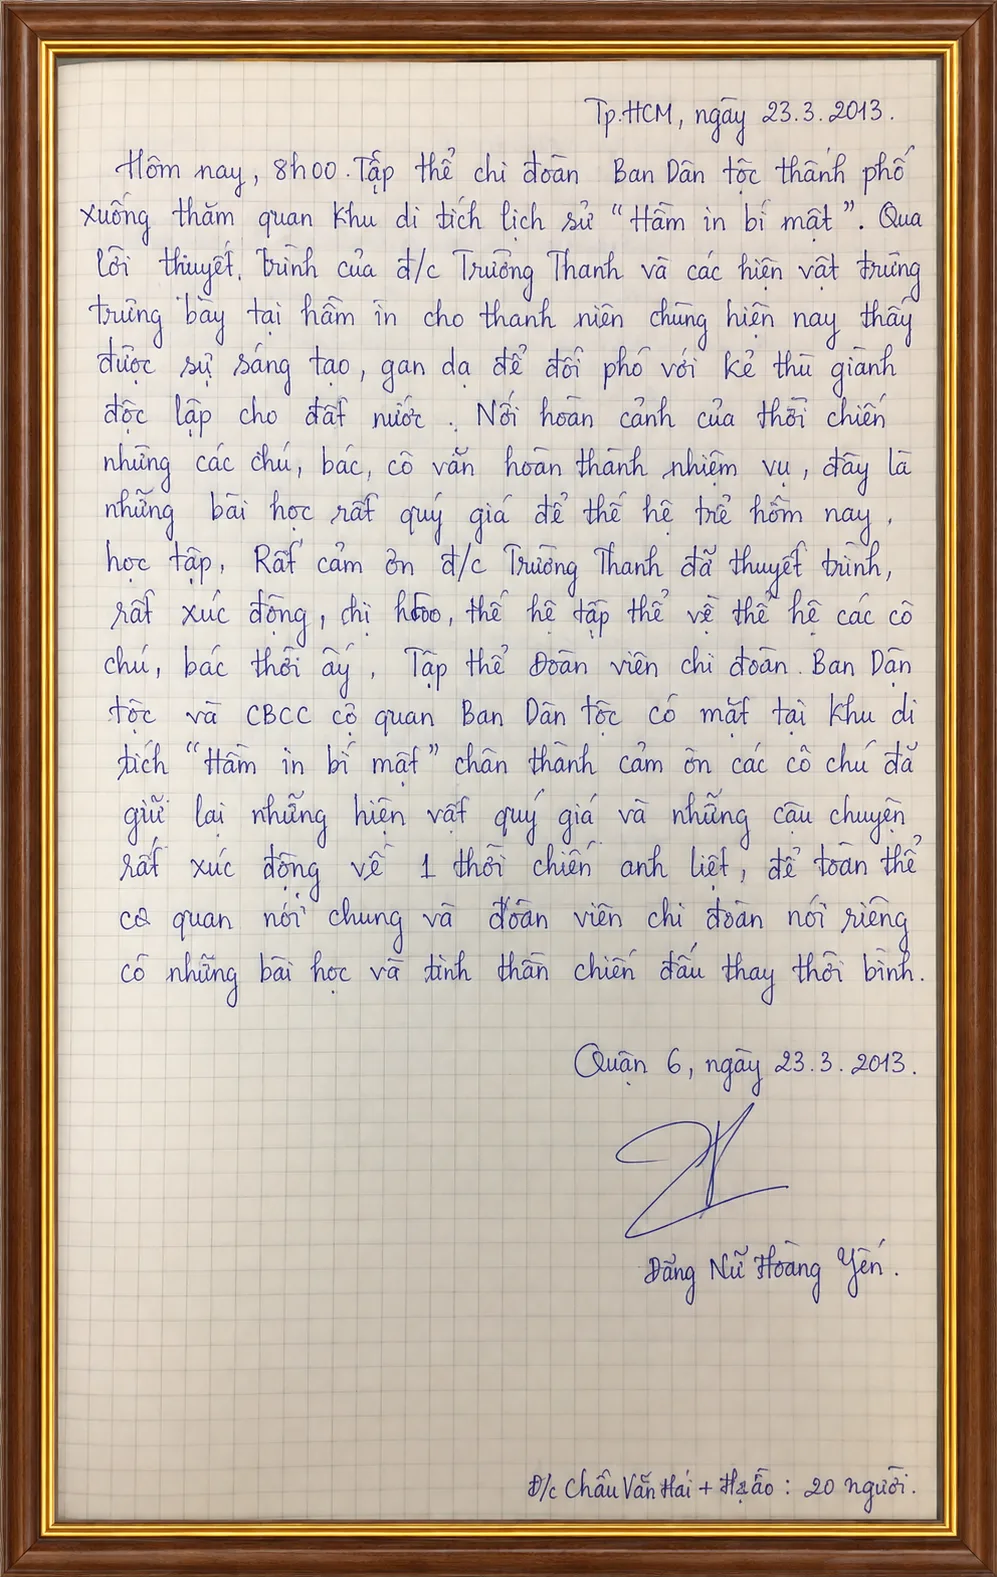 Tp.HCM, ngày 23.3.2013.
Hôm nay, 8h00. Tập thể chi đoàn Ban Dân tộc thành phố
xuống thăm quan khu di tích lịch sử “Hầm in bí mật”. Qua
lời thuyết trình của đ/c Trường Thanh và các hiện vật trưng
trưng bày tại hầm in cho thanh niên chúng hiện nay thấy
được sự sáng tạo, gan dạ để đối phó với kẻ thù giành
độc lập cho đất nước. Nơi hoàn cảnh của thời chiến
những các chú, bác, cô vẫn hoàn thành nhiệm vụ, đây là
những bài học rất quý giá để thế hệ trẻ hôm nay.
học tập, Rất cảm ơn đ/c Trường Thanh đã thuyết trình,
rất xúc động, thế hệ tập thể về thế hệ các cô
chú, bác thời ấy. Tập thể Đoàn viên chi đoàn Ban Dân
tộc và CBCC cơ quan Ban Dân tộc có mặt tại khu di
tích “Hầm in bí mật” chân thành cảm ơn các cô chú đã
giữ lại những hiện vật quý giá và những câu chuyện
rất xúc động về 1 thời chiến anh liệt, để toàn thể
cơ quan nói chung và đoàn viên chi đoàn nói riêng
có những bài học và tinh thần chiến đấu thay thời bình.
Quận 6, ngày 23.3.2013.
Đặng Nữ Hoàng Yến.
Đ/c Châu Văn Hái + : 20 người.